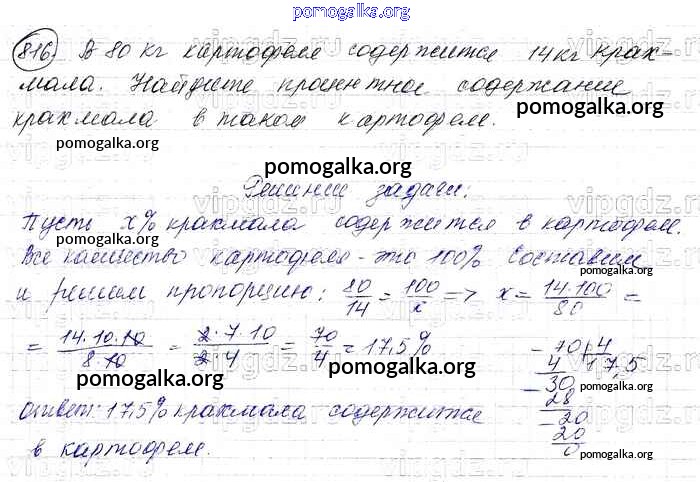 pomogalka.org
816. В 80 кг картофеля содержится 14 кг крах-
мала. Найдите процентное содержание
крахмала в таком картофеле.
Решение задачи:
Пусть x% крахмала содержится в картофеле.
Все количество картофеля - это 100%. Составим
и решим пропорцию: 80/14 = 100/x => x = 14·100/80 =
= 14·10·10/8·10 = 2·7·10/2·4 = 70/4 = 17,5%
70 4
4 17,5
30
28
20
20
0
Ответ: 17,5% крахмала содержится
в картофеле.
pomogalka.org
pomogalka.org
pomogalka.org
pomogalka.org
pomogalka.org
pomogalka.org
pomogalka.org
pomogalka.org
pomogalka.org
pomogalka.org
vipgdz.ru